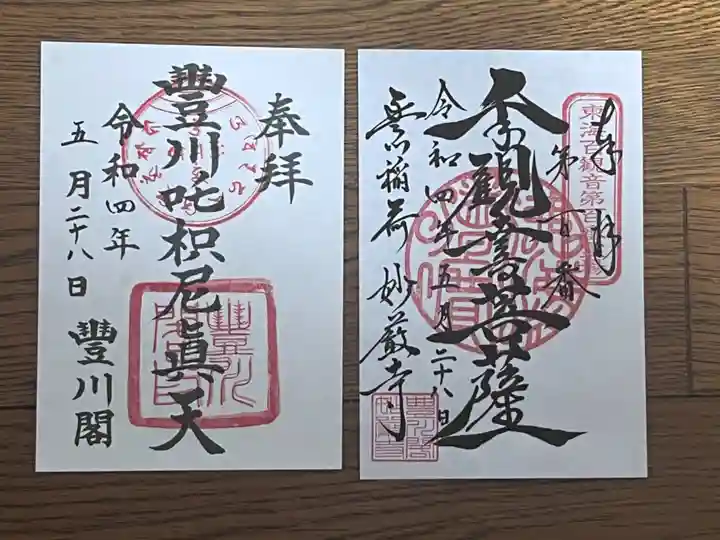 奉拝
豐川吒枳尼眞天
令和四年
五月二十八日
豐川閣
奉拝
東海百観音第百番
第百番
觀音菩薩
令和四年五月二十八日
豊川稲荷 妙厳寺